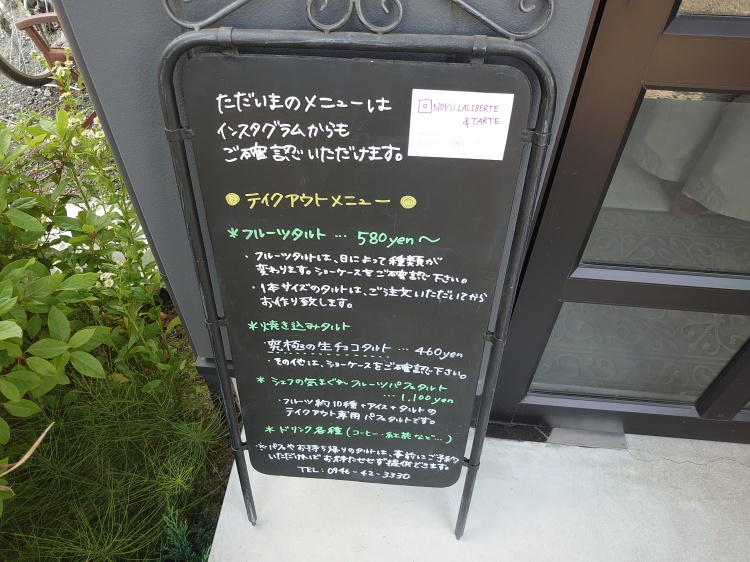 ただいまのメニューは
インスタグラムからも
ご確認いただけます。
NOYU.LALIBERTE
&TARTE
テイクアウトメニュー
*フルーツタルト … 580yen〜
・フルーツタルトは、日によって種類が
変わります。ショーケースをご確認下さい。
・1本サイズのタルトは、ご注文いただいてから
お作り致します。
*焼き込みタルト
・究極の生チョコタルト … 460yen
・その他は、ショーケースをご確認下さい。
*シェフの気まぐれフルーツパフェタルト
… 1,100yen
・フルーツ約10種+アイス+タルトの
テイクアウト専用パフェタルトです。
*ドリンク各種(コーヒー・紅茶など…)
※パフェやお持ち帰りのタルトは、事前にご予約
いただければお待たせせず提供できます。
TEL:0946-42-3330